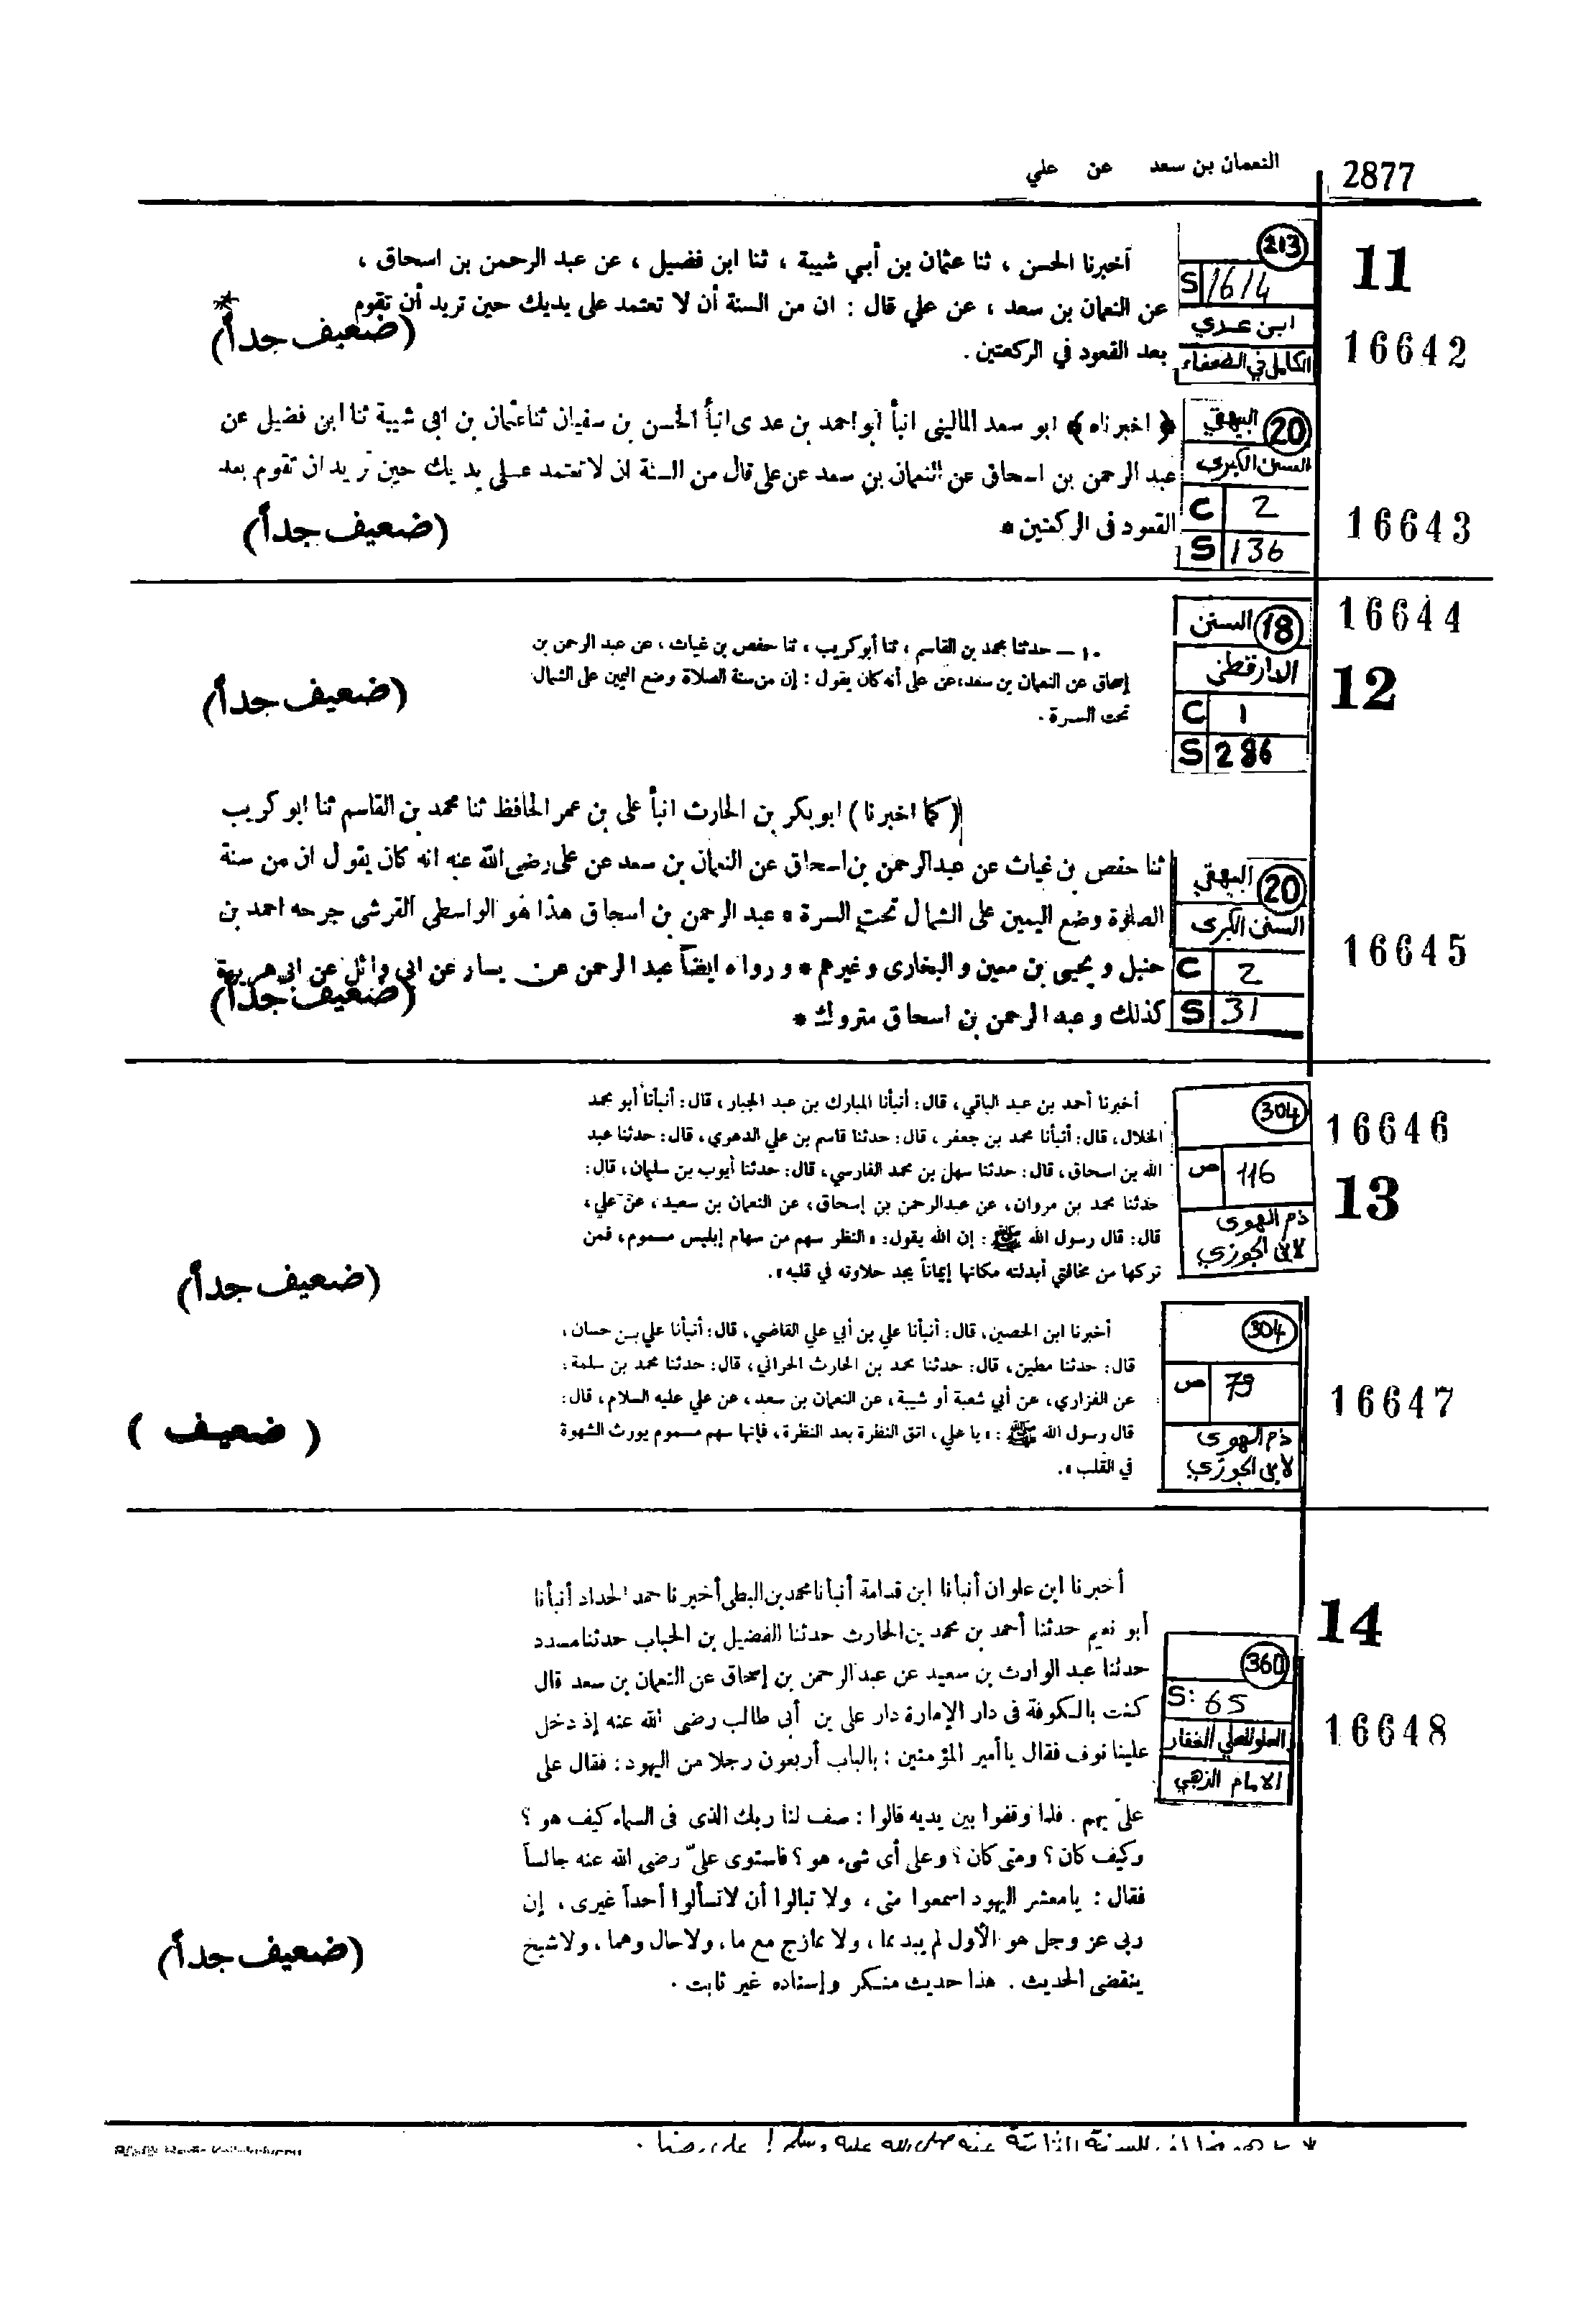 2877
النعمان بن سعد عن علي
11
16642
213
S 1614
ابن عدي
الكامل في الضعفاء
أخبرنا الحسن ، ثنا عثمان بن أبي شيبة ، ثنا ابن فضيل ، عن عبد الرحمن بن اسحاق ،
عن النعمان بن سعد ، عن علي قال : ان من السنة أن لا تعتمد على يديك حين تريد أن تقوم
بعد القعود في الركعتين .
(ضعيف جداً) *
16643
20 البيهقي
السنن الكبرى
C 2
S 136
﴿ اخبرناه ﴾ ابو سعد الماليني انبأ ابو احمد بن عدى انبأ الحسن بن سفيان ثنا عثمان بن ابى شيبة ثنا ابن فضيل عن
عبد الرحمن بن اسحاق عن النعمان بن سعد عن على قال من السنة ان لا تعتمد على يديك حين تريد ان تقوم بعد
القعود فى الركعتين *
(ضعيف جداً)
16644
12
18 السنن
الدارقطني
C 1
S 286
١٠ – حدثنا محمد بن القاسم ، ثنا أبو كريب ، ثنا حفص بن غياث ، عن عبد الرحمن بن
إسحاق عن النعمان بن سعد، عن على أنه كان يقول : إن من سنة الصلاة وضع اليمين على الشمال
تحت السرة .
(ضعيف جداً)
16645
20 البيهقي
السنن الكبرى
C 2
S 31
(كما اخبرنا) ابو بكر بن الحارث انبأ على بن عمر الحافظ ثنا محمد بن القاسم ثنا ابو كريب
ثنا حفص بن غياث عن عبد الرحمن بن اسحاق عن النعمان بن سعد عن على رضى الله عنه انه كان يقول ان من سنة
الصلوة وضع اليمين على الشمال تحت السرة * عبد الرحمن بن اسحاق هذا هو الواسطى القرشى جرحه احمد بن
حنبل و يحيى بن معين و البخارى و غيرهم * و رواه ايضاً عبد الرحمن عن يسار عن ابى وائل عن ابى هريرة
كذلك و عبد الرحمن بن اسحاق متروك *
(ضعيف جداً)
16646
13
304
ص 116
ذم الهوى
لابن الجوزي
أخبرنا أحمد بن عبد الباقي، قال: أنبأنا المبارك بن عبد الجبار، قال: أنبأنا أبو محمد
الخلال، قال: أنبأنا محمد بن جعفر، قال: حدثنا قاسم بن علي الدهوي، قال: حدثنا عبد
الله بن اسحاق، قال: حدثنا سهل بن محمد الفارسي، قال: حدثنا أيوب بن سليمان، قال:
حدثنا محمد بن مروان، عن عبدالرحمن بن إسحاق، عن النعمان بن سعيد، عن علي،
قال: قال رسول الله ﷺ: إن الله يقول: «النظر سهم من سهام إبليس مسموم، فمن
تركها من مخافتي أبدلته مكانها إيماناً يجد حلاوته في قلبه».
(ضعيف جداً)
16647
304
ص 79
ذم الهوى
لابن الجوزي
أخبرنا ابن الحصين، قال: أنبأنا علي بن أبي علي القاضي، قال: أنبأنا علي بن حسان،
قال: حدثنا مطين، قال: حدثنا محمد بن الحارث الحراني، قال: حدثنا محمد بن سلمة:
عن الفزاري، عن أبي شعبة أو شيبة، عن النعمان بن سعد، عن علي عليه السلام، قال:
قال رسول الله ﷺ: «يا علي، اتق النظرة بعد النظرة، فإنها سهم مسموم يورث الشهوة
في القلب».
( ضعيف )
14
16648
360
S: 65
العلو للعلي الغفار
الامام الذهبي
أخبرنا ابن علوان أنبأنا ابن قدامة أنبأنا محمد بن البطى أخبرنا حمد الحداد أنبأنا
أبو نعيم حدثنا أحمد بن محمد بن الحارث حدثنا الفضيل بن الحباب حدثنا مسدد
حدثنا عبد الوارث بن سعيد عن عبد الرحمن بن إسحاق عن النعمان بن سعد قال
كنت بالكوفة فى دار الإمارة دار على بن أبى طالب رضى الله عنه إذ دخل
علينا نوف فقال يا أمير المؤمنين : بالباب أربعون رجلا من اليهود : فقال على
علىّ بهم . فلما وقفوا بين يديه قالوا : صف لنا ربك الذى فى السماء كيف هو ؟
وكيف كان ؟ ومتى كان ؟ وعلى أى شىء هو ؟ فاستوى علىّ رضى الله عنه جالساً
فقال : يا معشر اليهود اسمعوا منى ، ولا تبالوا أن لا تسألوا أحداً غيرى ، إن
ربى عز وجل هو الأول لم يبد مما ، ولا ممازج مع ما ، ولا حال وهما ، ولا شبح
ينقضى الحديث . هذا حديث منكر وإسناده غير ثابت .
(ضعيف جداً)
* للسنة الثابتة عنه صلى الله عليه وسلم !